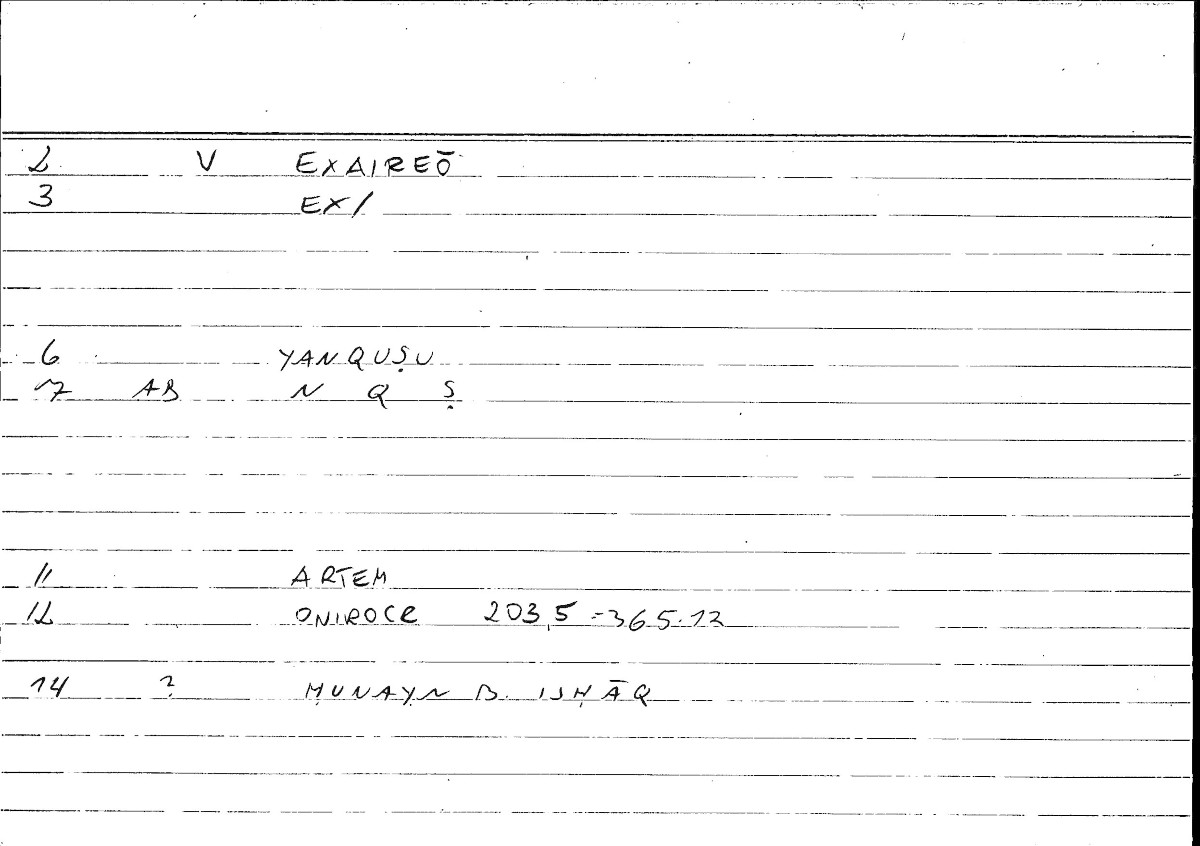 2 V EXAIREŌ
3 EX/
6 YANQUṢU
7 AB N Q Ṣ
11 ARTEM
12 ONIROCR 203,5 = 365.12
14 ? ḤUNAYN B. ISḤĀQ